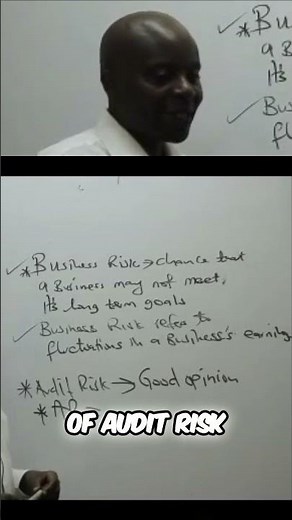 * Busi
a Busin
It's
Bus
fl
* Business Risk → chance that
a Business may not meet,
It's long term goals
Business Risk refer to
fluctuations in a Business's earning
* Audit Risk → Good opinion
* AR →
OF AUDIT RISK